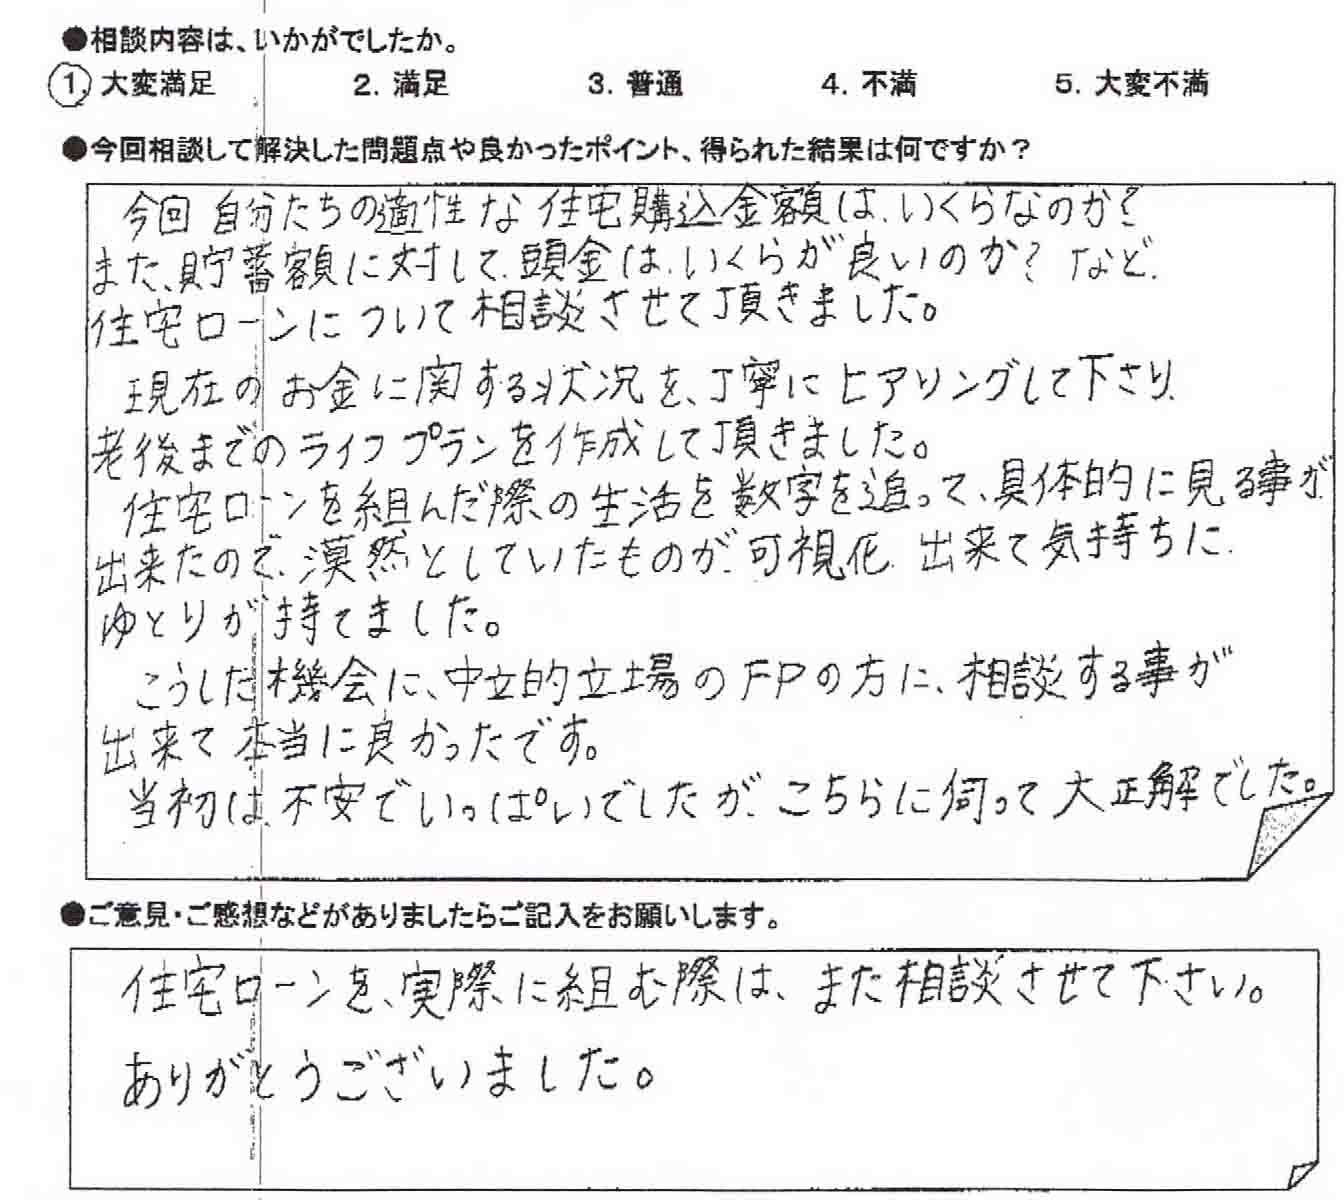 ●相談内容は、いかがでしたか。
1. 大変満足 2. 満足 3. 普通 4. 不満 5. 大変不満
●今回相談して解決した問題点や良かったポイント、得られた結果は何ですか？
今回 自分たちの適性な住宅購込金額は、いくらなのか？
また、貯蓄額に対して、頭金は、いくらが良いのか？など、
住宅ローンについて相談させて頂きました。
現在のお金に関する状況を、丁寧にヒアリングして下さり、
老後までのライフプランを作成して頂きました。
住宅ローンを組んだ際の生活を数字を追って、具体的に見る事が
出来たので、漠然としていたものが、可視化 出来て気持ちに
ゆとりが持てました。
こうした機会に、中立的立場のFPの方に、相談する事が
出来て本当に良かったです。
当初は、不安でいっぱいでしたが、こちらに伺って大正解でした。
●ご意見・ご感想などがありましたらご記入をお願いします。
住宅ローンを、実際に組む際は、また相談させて下さい。
ありがとうございました。